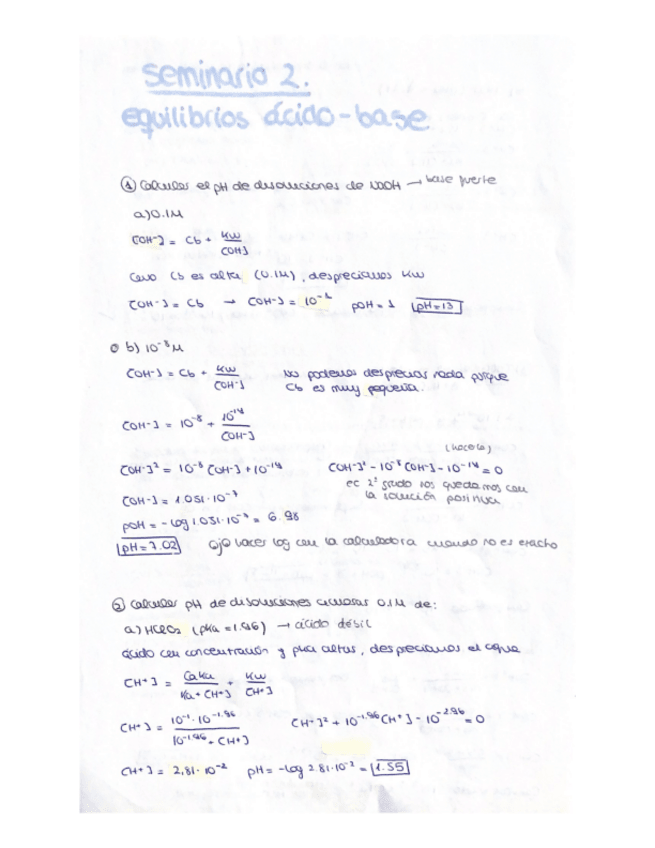 seminario 2.
equilibrios ácido-base.
① Calcular el pH de disoluciones de NaOH → base fuerte
a) 0.1M
[OH-] = Cb + Kw/[OH-]
Como Cb es alta (0.1M), despreciamos Kw
[OH-] = Cb → [OH-] = 10^-1 pOH = 1 pH=13
b) 10^-8 M
[OH-] = Cb + Kw/[OH-] No podemos despreciar nada porque
Cb es muy pequeña.
[OH-] = 10^-8 + 10^-14/[OH-]
(hacerla)
[OH-]² = 10^-8 [OH-] + 10^-14 [OH-]² - 10^-8 [OH-] - 10^-14 = 0
ec 2º grado nos quedamos con
la solución positiva
[OH-] = 1.051·10^-7
pOH = -log 1.051·10^-7 = 6.98
pH=7.02 Ojo hacer log con la calculadora cuando no es exacto
② Calcular pH de disoluciones acuosas 0.1M de:
a) HClO2 (pKa = 1.96) → ácido débil
ácido con concentración y pKa altas, despreciamos el agua
[H+] = CaKa/Ka + [H+] + Kw/[H+]
[H+] = 10^-1 · 10^-1.96/10^-1.96 + [H+] [H+]² + 10^-1.96 [H+] - 10^-2.96 = 0
[H+] = 2,81·10^-2 pH = -log 2.81·10^-2 = 1.55